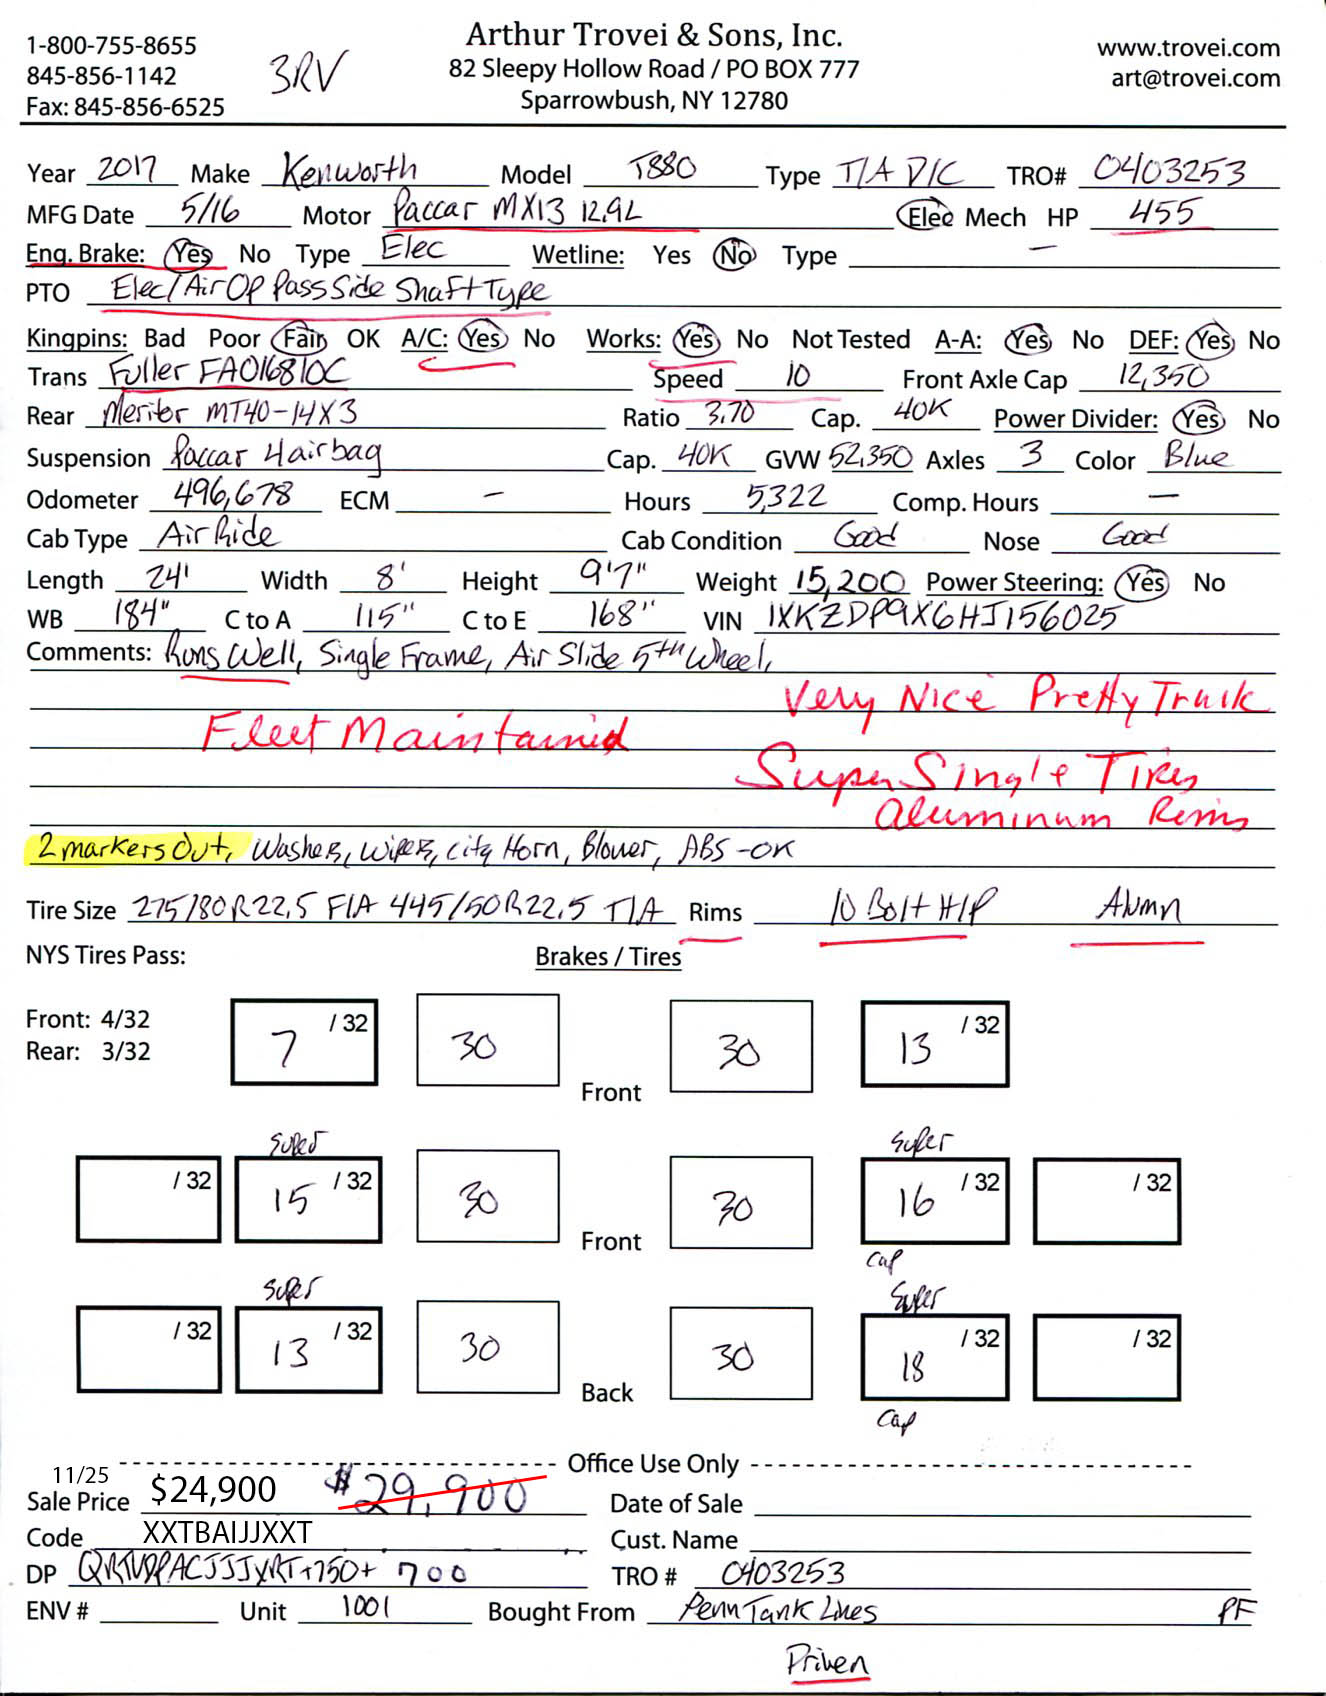 Arthur Trovei & Sons, Inc.
1-800-755-8655
845-856-1142
Fax: 845-856-6525
3RV
82 Sleepy Hollow Road / PO BOX 777
Sparrowbush, NY 12780
www.trovei.com
art@trovei.com
Year 2017 Make Kenworth Model T880 Type T/A D/C TRO# 0403253
MFG Date 5/16 Motor Paccar MX13 12.9L Elec Mech HP 455
Eng. Brake: Yes No Type Elec Wetline: Yes No Type —
PTO Elec/Air Op Pass Side Shaft Type
Kingpins: Bad Poor Fair OK A/C: Yes No Works: Yes No Not Tested A-A: Yes No DEF: Yes No
Trans Fuller FAO16810C Speed 10 Front Axle Cap 12,350
Rear Meritor MT40-14X3 Ratio 3.70 Cap. 40K Power Divider: Yes No
Suspension Paccar 4 airbag Cap. 40K GVW 52,350 Axles 3 Color Blue
Odometer 496,678 ECM — Hours 5,322 Comp. Hours —
Cab Type Air Ride Cab Condition Good Nose Good
Length 24' Width 8' Height 9'7" Weight 15,200 Power Steering: Yes No
WB 184" C to A 115" C to E 168" VIN 1XKZDP9X6HJ156025
Comments: Runs Well, Single Frame, Air Slide 5th Wheel,
Very Nice Pretty Truck
Fleet Maintained
Super Single Tires
Aluminum Rims
2 markers Out, Washers, Wipers, City Horn, Blower, ABS-OK
Tire Size 275/80R22.5 F/A 445/50R22.5 T/A Rims 10 Bolt H/P Alumn
NYS Tires Pass: Brakes / Tires
Front: 4/32
Rear: 3/32
7 /32 30 Front 30 13 /32
Super Super
/32 15 /32 30 Front 30 16 /32 /32
Cap
Super Super
/32 13 /32 30 Back 30 18 /32 /32
Cap
Office Use Only
11/25
Sale Price $24,900 $29,900 Date of Sale
Code XXTBAIJJXXT Cust. Name
DP +750+ 700 TRO # 0403253
ENV # Unit 1001 Bought From Penn Tank Lines PF
Driven